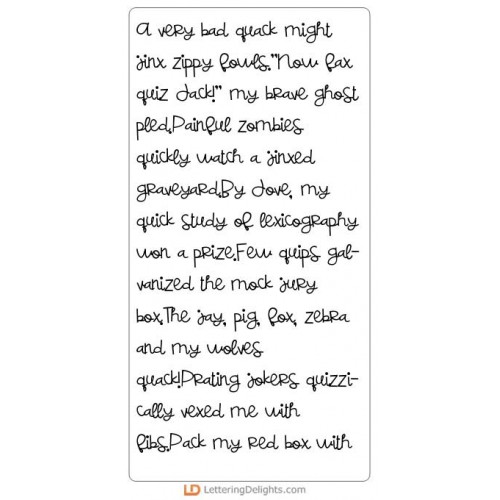 A very bad quack might
jinx zippy fowls."Now fax
quiz Jack!" my brave ghost
pled.Painful zombies
quickly watch a jinxed
graveyard.By Jove, my
quick study of lexicography
won a prize.Few quips gal-
vanized the mock jury
box.The jay, pig, fox, zebra
and my wolves
quack!Prating jokers quizzi-
cally vexed me with
fibs.Pack my red box with
LD LetteringDelights.com